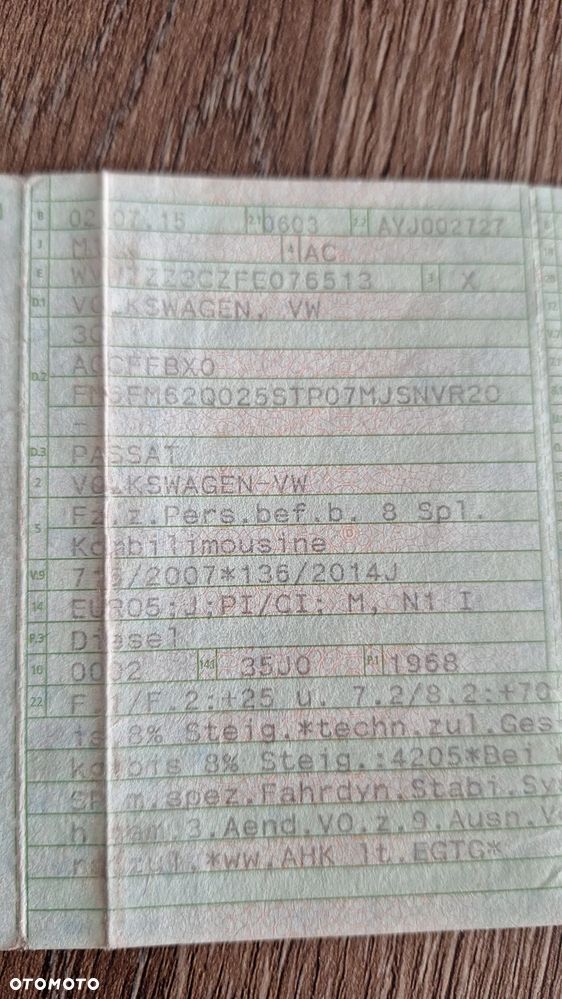 B 02.07.15 2.1 0603 2.2 AYJ002727
J M1 4 AC
E ZZ3CZFE076513 3 X
D.1 VOLKSWAGEN, VW
3C
D.2 ACCFFBX0
FM62Q025STP07MJSNVR20
-
D.3 PASSAT
2 VOLKSWAGEN-VW
5 Fz.z.Pers.bef.b. 8 Spl.
Kombilimousine
V.9 715/2007*136/2014J
14 EURO5;J;PI/CI: M, N1 I
P.3 Diesel
10 0002 14.1 35J0 P.1 1968
22 F.1/F.2:+25 u. 7.2/8.2:+70
8% Steig.*techn.zul.Ges
8% Steig.:4205*Bei
m.spez.Fahrdyn.Stabi.Sy
3.Aend.VO.z.9.Ausn.V
zul.*ww.AHK lt.EGTG*
OTOMOTO